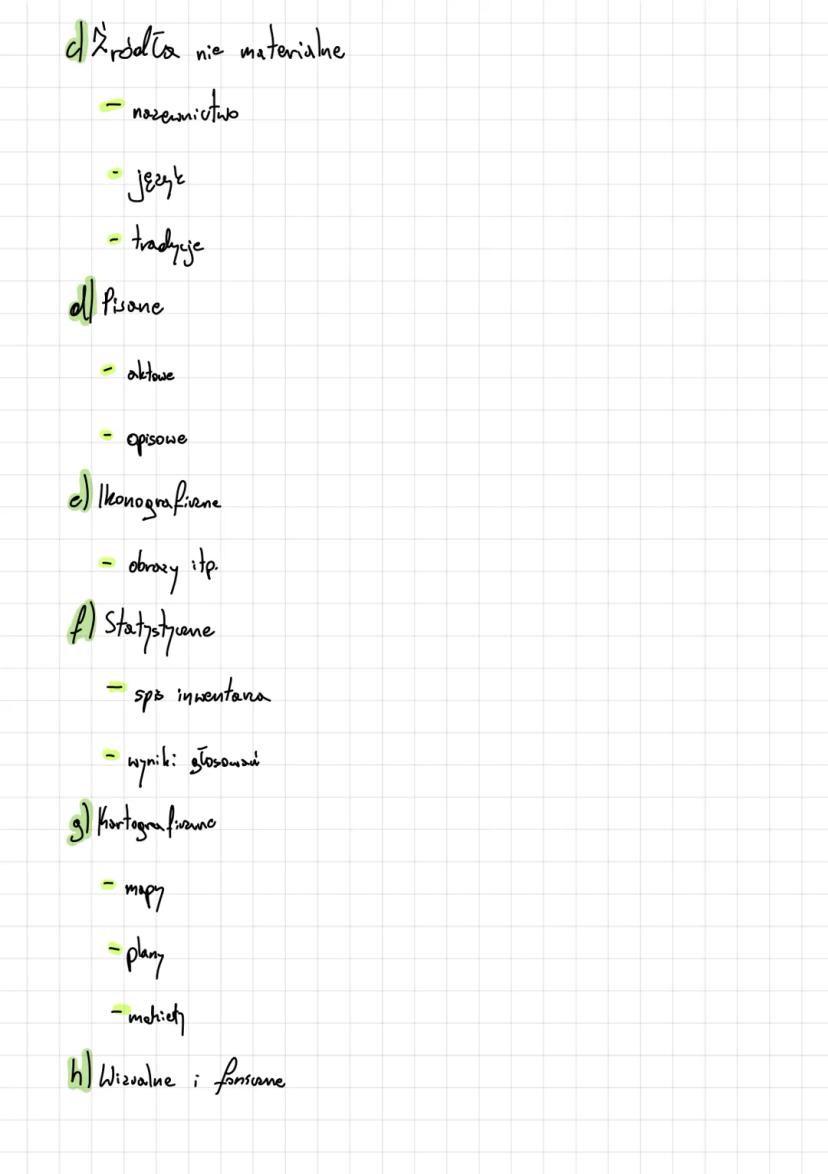 c) Źródła nie materialne
- nazewnictwo
- język
- tradycje
d) Pisane
- aktowe
- opisowe
e) Ikonograficzne
- obrazy itp.
f) Statystyczne
- spis inwentarza
- wyniki głosowań
g) Kartograficzne
- mapy
- plany
- makiety
h) Wizualne i foniczne